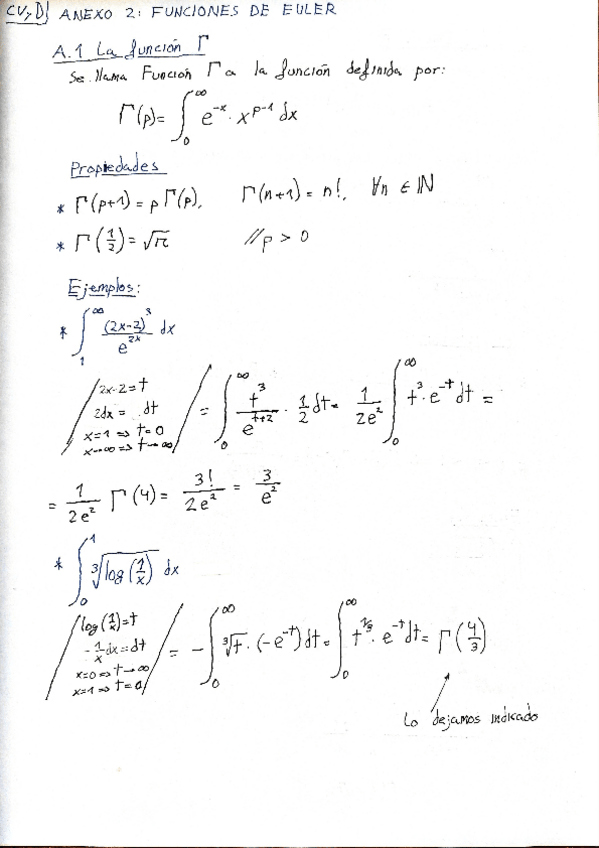 CV y D) ANEXO 2: FUNCIONES DE EULER
A.1 La función Γ
Se llama Función Γ a la función definida por:
Γ(p) = ∫_0^∞ e^{-x} · x^{p-1} dx
Propiedades
* Γ(p+1) = p Γ(p), Γ(n+1) = n!, ∀n ∈ ℕ
* Γ(1/2) = √π // p > 0
Ejemplos:
* ∫_1^∞ (2x-2)^3 / e^{2x} dx
/ 2x-2 = t
2dx = dt
x=1 ⇒ t=0
x→∞ ⇒ t→∞ / = ∫_0^∞ t^3 / e^{t+2} · 1/2 dt = 1/(2e^2) ∫_0^∞ t^3 · e^{-t} dt =
= 1/(2e^2) Γ(4) = 3!/(2e^2) = 3/e^2
* ∫_0^1 ∛(log(1/x)) dx
/ log(1/x) = t
-1/x dx = dt
x=0 ⇒ t→∞
x=1 ⇒ t=0 / = -∫_0^∞ ∛t · (-e^{-t}) dt = ∫_0^∞ t^{1/3} · e^{-t} dt = Γ(4/3)
Lo dejamos indicado